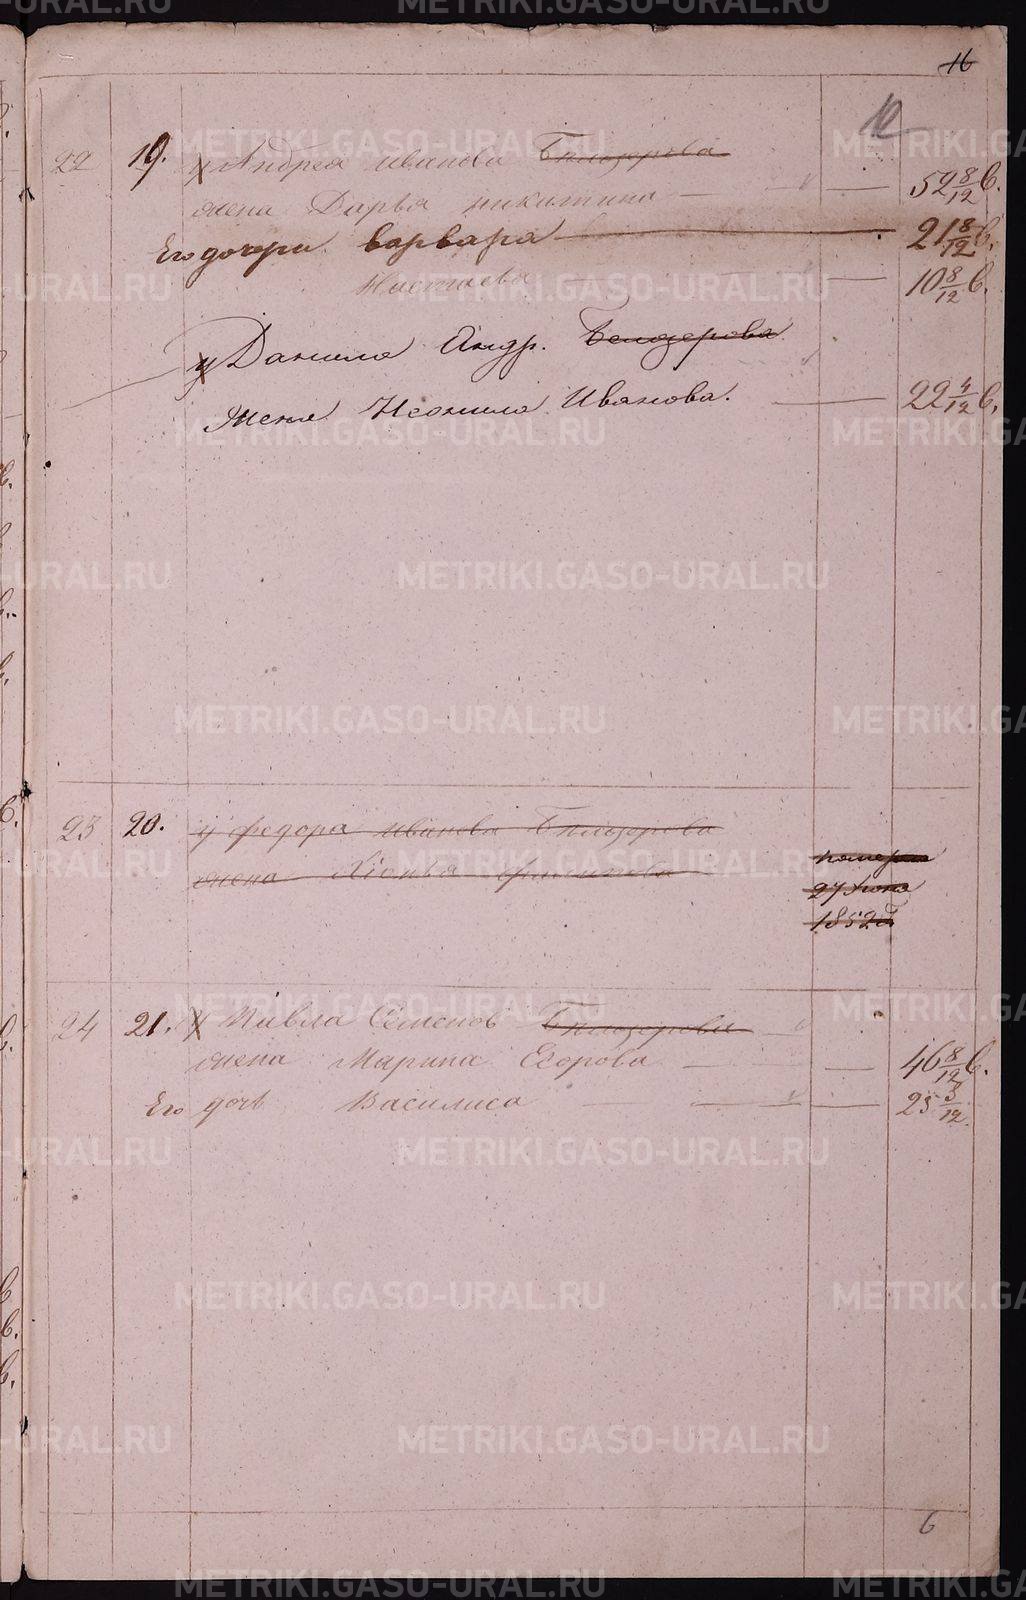 16
12
22 19. у Андрея Иванова Белозерова
жена Дарья Никитина 52 8/12 в.
Его дочери Варвара 21 8/12 в.
Настасья 10 8/12 в.
у Данила Андр. Белозерова
жена Неонила Иванова. 22 4/12 в.
23 20. у Федора Иванова Белозерова
жена
померла
27 Июня
1852 г
24 21. у Павла Семенов Белозерова
жена Марина Егорова 46 8/12 в.
Его дочь Василиса 25 3/12
6
METRIKI.GASO-URAL.RU